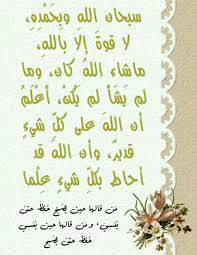 سبحان الله وبحمده،
لا قوة إلا بالله،
ماشاء الله كان، وما
لم يشأ لم يكن، أعلم
أن الله على كل شيء
قدير، وأن الله قد
أحاط بكل شيء علما
من قالها حين يصبح حفظ حتى
يمسي، ومن قالها حين يمسي
حفظ حتى يصبح